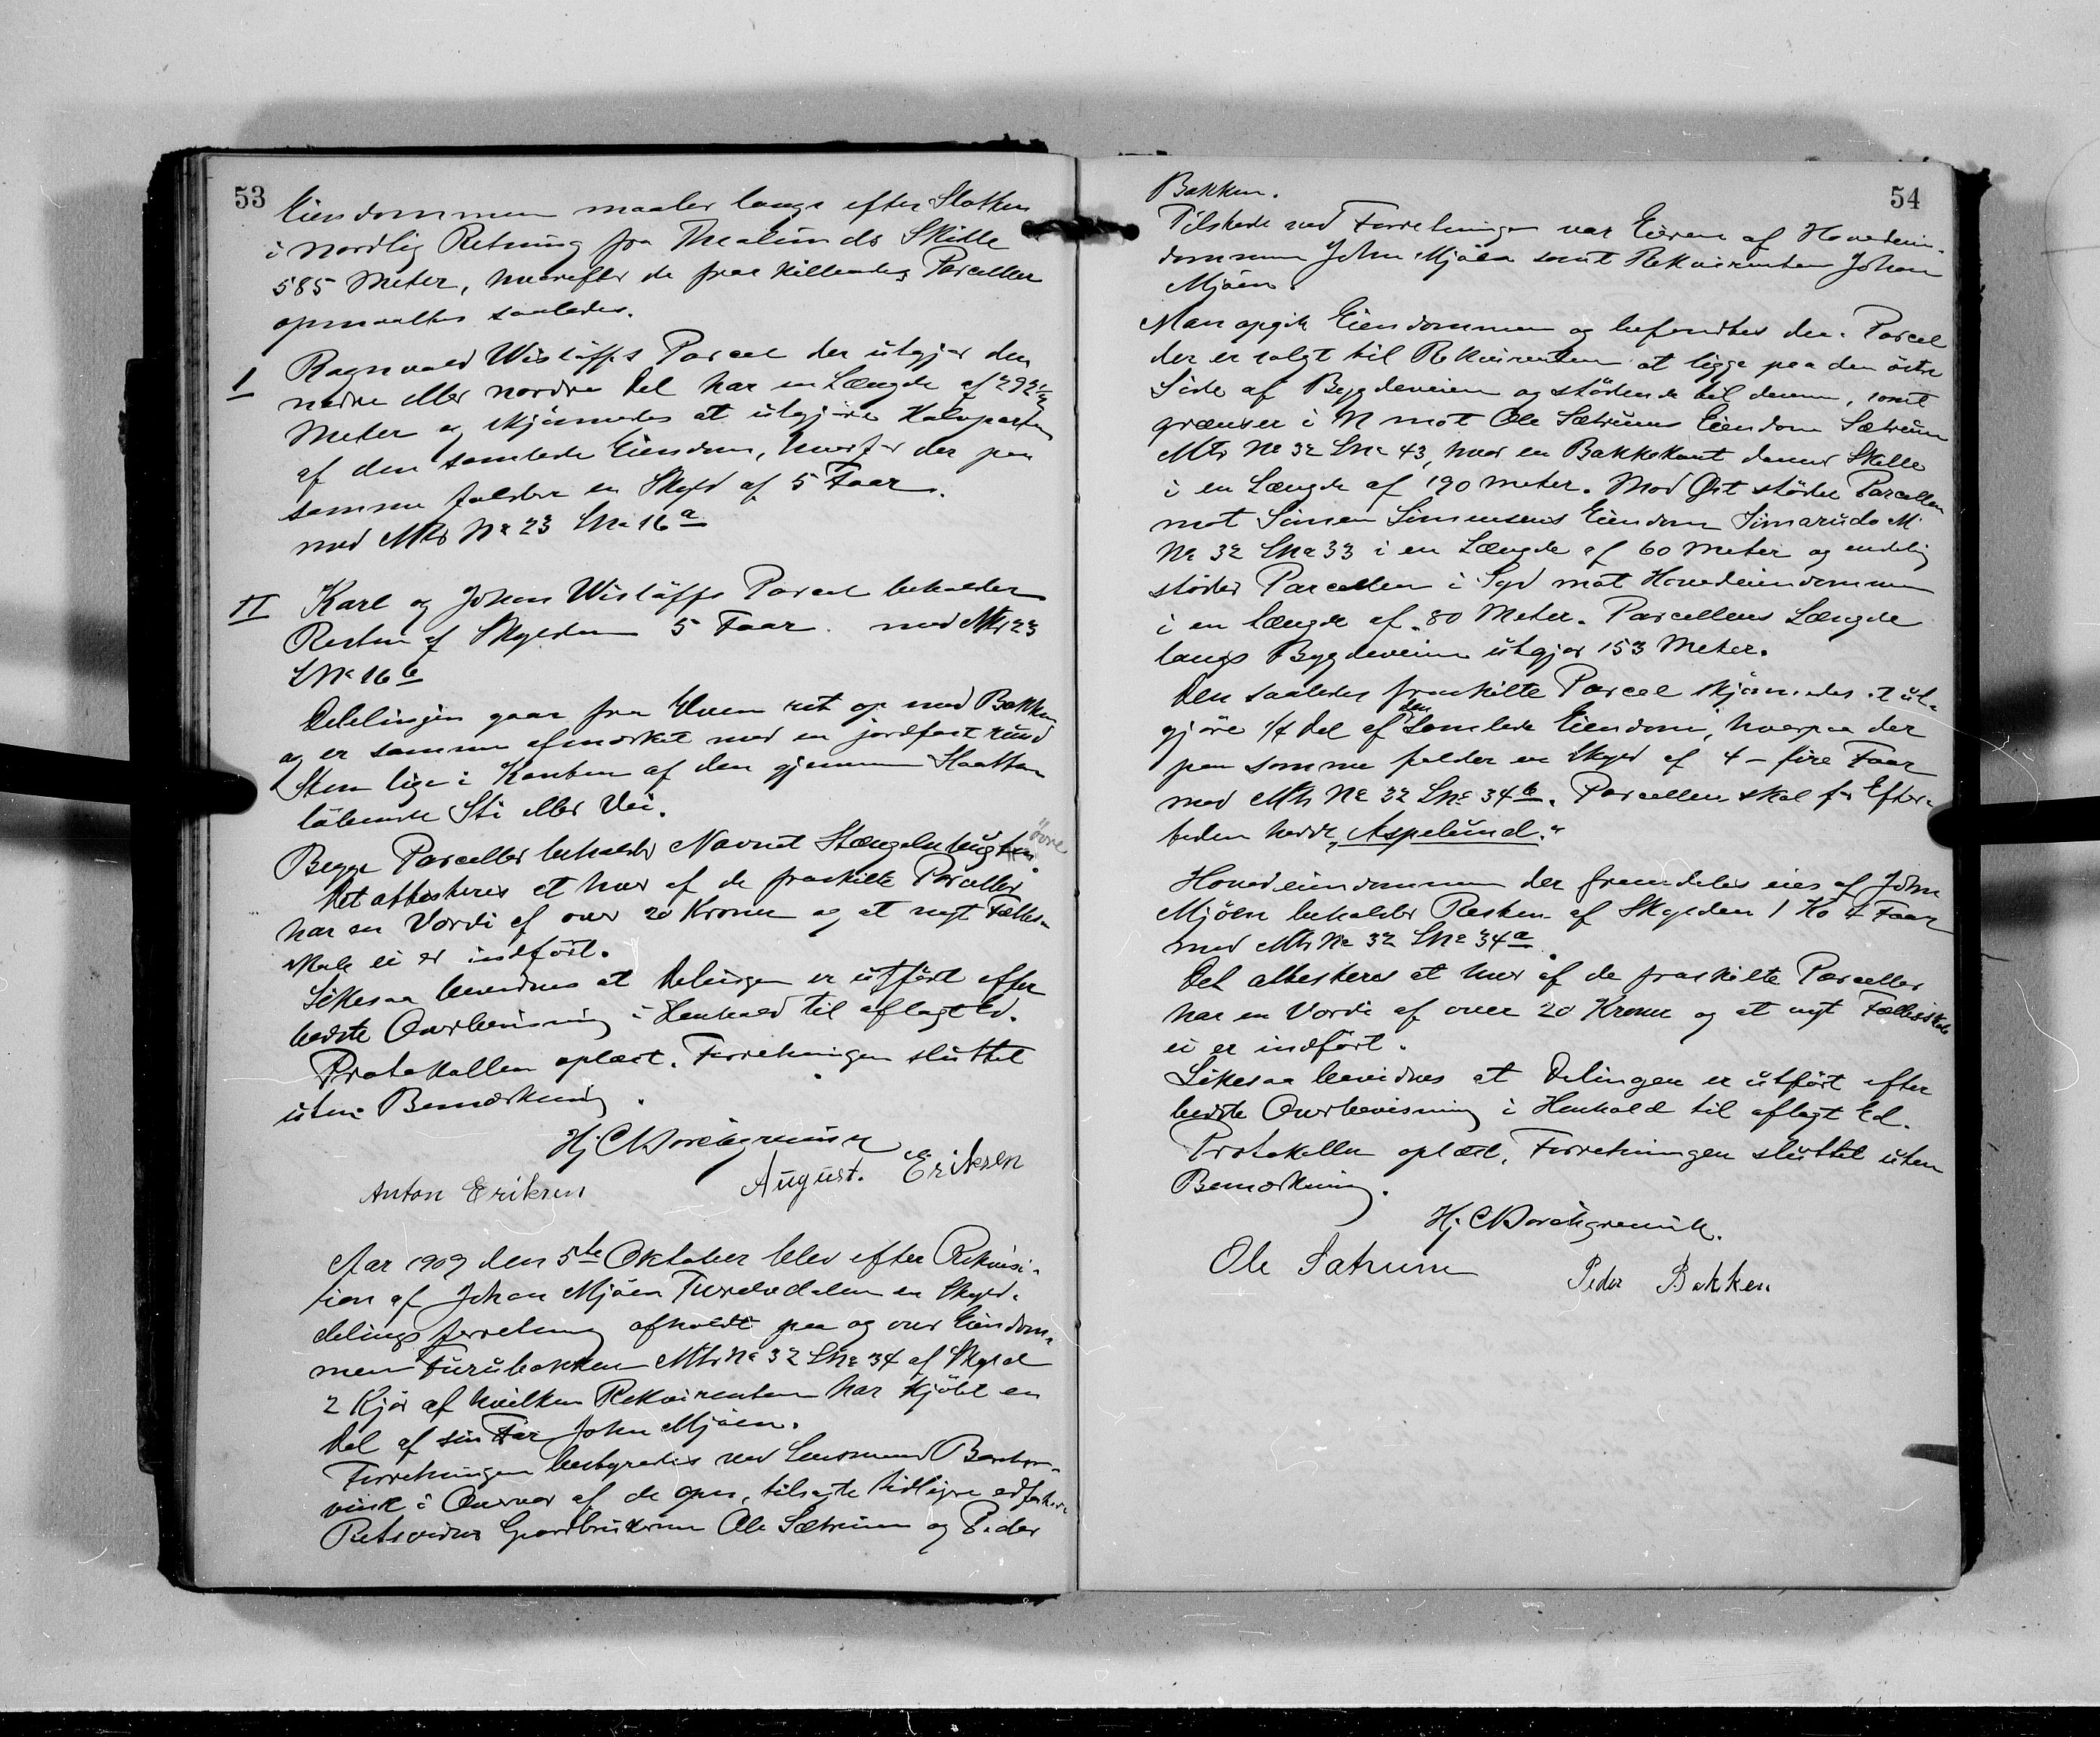 53
Eiendommen maaler langs efter Slotten
i nordlig Retning fra Thealunds Skille
585 Meter, hvorefter de fraskillendes Parceller
opmaaltes saaledes.
I
Ragnvald Wisløffs Parcel der utgjør den
nedre eller nordre Del har en Længde af 292 1/2
Meter og skjønnedes at utgjøre Halvparten
af den samlede Eiendom, hvorfor der paa
samme falder en Skyld af 5 Faar
med Mtr No 23 LNo 16 a
II
Karl og Johan Wisløffs Parcel beholder
Resten af Skylden 5 Faar med Mtr 23
LNo 16 b
Delelinjen gaar fra Elven ret op mod Bakken
og er samme afmærket med en jordfast rund
Sten lige i Kanten af den gjennem Slaatten
løbende Sti eller Vei.
Begge Parceller beholder Navnet Stængelhugten
Øvre
Det attesteres at hver af de fraskilte Parceller
har en Værdi af over 20 Kroner og at nyt Fælles-
skab ei er indført.
Likesaa bevidnes at Delingen er utført efter
bedste Overbevisning i Henhold til aflagt Ed.
Protokollen oplæst. Forretningen sluttet
uten Bemærkning.
Hj. C Borchgrevink
Anton Eriksen August. Eriksen
Aar 1909 den 5te Oktober blev efter Rekvisi-
tion af Johan Mjöen Turelvdalen en Skyld-
delingsforretning afholdt paa og over Eiendom-
men Furubakken Mtr No 32 LNo 34 af Skyld
2 Kjør af hvilken Rekvirenten har kjöbt en
Del af sin Far John Mjöen.
Forretningen bestyredes ved Lensmand Borchgre-
vink i Overvær af de opn. tilsagte tidligere edfæstede
Retsvidner Gaardbrukerne Ole Sætrum og Peder
54
Bakken.
Tilstede ved Forretningen var Eieren af Hovedeien-
dommen John Mjöen samt Rekvirenten Johan
Mjöen.
Man opgik Eiendommen og befandtes den Parcel
der er solgt til Rekvirenten at ligge paa den østre
Side af Bygdeveien og stødende til denne, samt
grænser i N mot Ole Sætrums Eiendom Sætrum
Mtr No 32 LNo 43, hvor en Bakkekant danner Skille
i en Længde af 190 meter. Mod Øst støder Parcellen
mot Simen Simensens Eiendom Simarud M
No 32 LNo 33 i en Længde af 60 Meter og endelig
støder Parcellen i Syd mot Hovedeiendommen
i en længde af 80 Meter. Parcellens Længde
langs Bygdeveien utgjør 153 Meter.
Den saaledes fraskilte Parcel skjønnedes at ut-
gjøre 1/4 Del af den samlede Eiendom, hvorpaa der
paa samme falder en Skyld af 4 - fire Faar
med Mtr No 32 LNo 34 b. Parcellen skal for Efter-
tiden hedde „Aspelund."
Hovedeiendommen der fremdeles eies af John
Mjöen beholder Resten af Skylden 1 Ko 4 Faar
med Mtr No 32 LNo 34 a
Det attesteres at hver af de fraskilte Parceller
har en Værdi af over 20 Kroner og at nyt Fællesskab
ei er indført.
Likesaa bevidnes at Delingen er utført efter
bedste Overbevisning i Henhold til aflagt Ed.
Protokollen oplæst, Forretningen sluttet uten
Bemærkning.
Hj. C Borchgrevink.
Ole Satrum Peder Bakken.